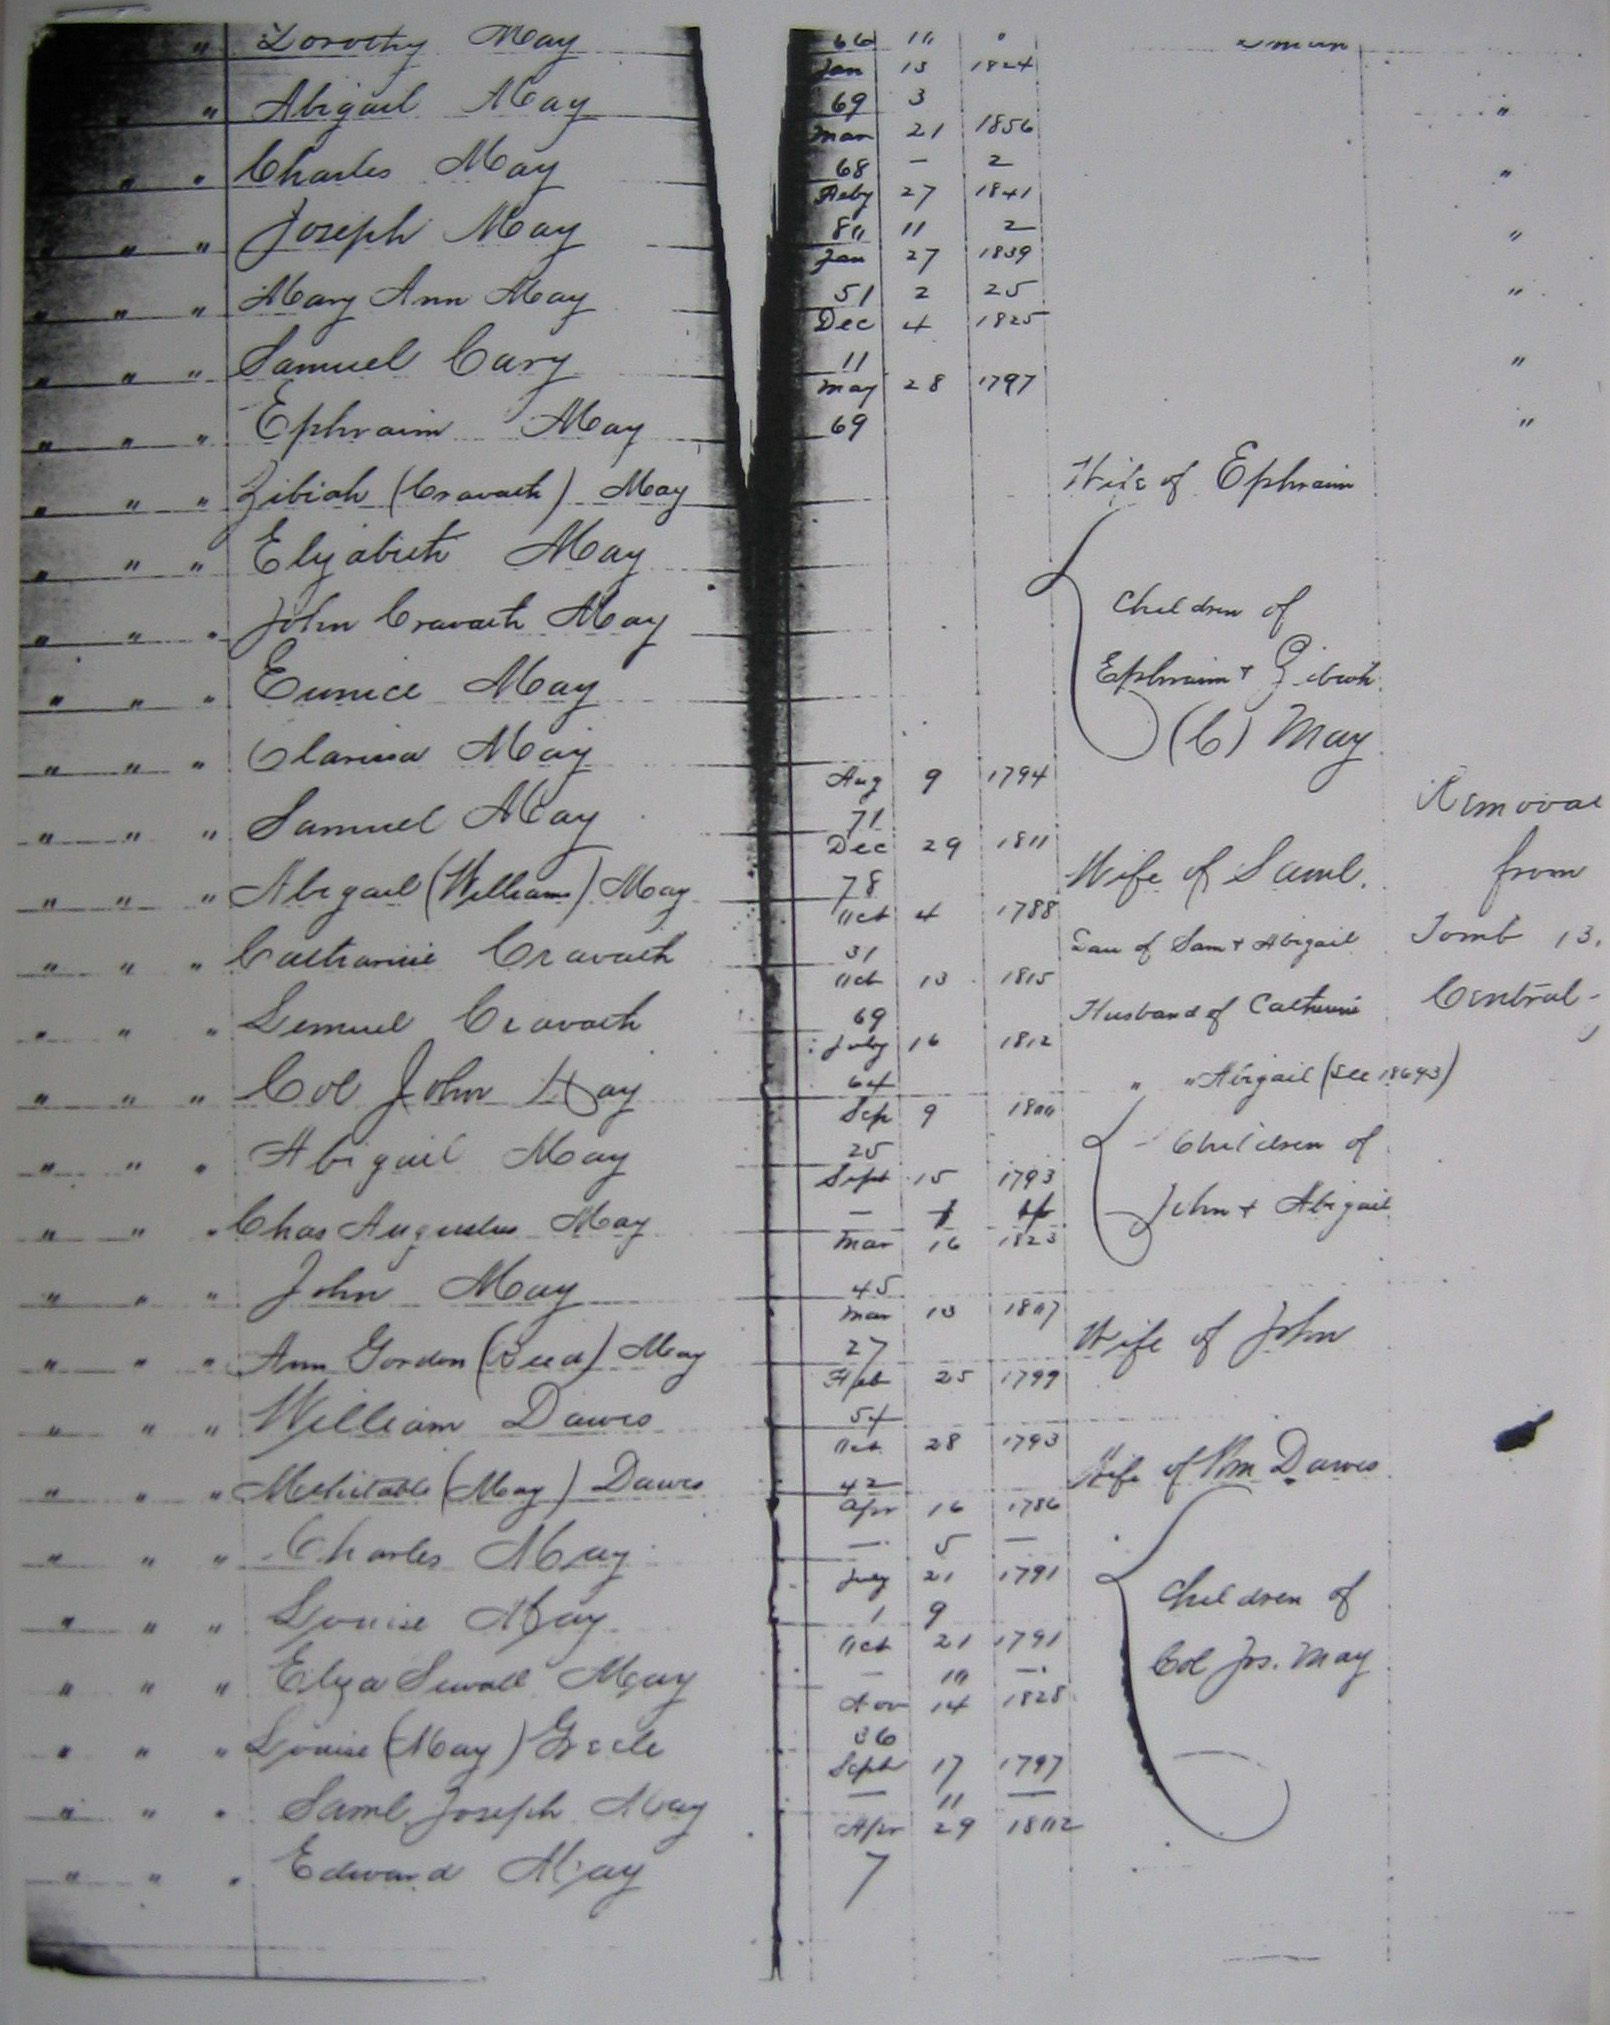 " Dorothy May 66 10
Jan 13 1824
" Abigail May 69 3 "
Mar 21 1856
" " Charles May 68 – 2 "
Feby 27 1841
" " " Joseph May 80 11 2 "
Jan 27 1839
" " " Mary Ann May 51 2 25 "
Dec 4 1825
" " " Samuel Cary 11 "
May 28 1797
" " " Ephraim May 69 "
" " " Zibiah (Cravath) May Wife of Ephraim
" " " Elizabeth May
" " " John Cravath May Children of
" " " Eunice May Ephraim + Zibiah
" " " Clarissa May (C) May
Aug 9 1794 Removal
" " " Samuel May 71
Dec 29 1811 from
" " " Abigail (Williams) May 78 Wife of Saml.
Oct 4 1788
" " " Catharine Cravath 31 Dau of Sam + Abigail Tomb 13.
Oct 13 1815
" " " Lemuel Cravath 69 Husband of Catherine Central-
July 16 1812
" " " Col John May 64 " " Abigail (See 18693)
Sep 9 1800
" " " Abigail May 25 Children of
Sept 15 1793
" " " Chas Augustus May – John + Abigail
Mar 16 1823
" " " John May 45
Mar 13 1807
" " " Ann Gordon (Reed) May 27 Wife of John
Feb 25 1799
" " " William Dawes 54
Oct 28 1793
" " " Mehitable (May) Dawes 42 Wife of Wm Dawes
Apr 16 1786
" " " Charles May – 5 –
July 21 1791
" " " Louise May 1 9 Children of
Oct 21 1791
" " " Eliza Sewall May – 10 – Col Jos. May
Nov 14 1828
" " " Louise (May) Greele 36
Sept 17 1797
" " " Saml. Joseph May – 11 –
Apr 29 1802
" " " Edward May 7